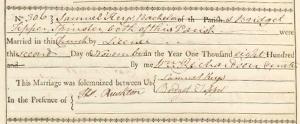 No. 306 Samuel Keys Bachelor of this Parish & Bridget
Tipper Spinster both of this Parish were
Married in this Church by Licence
this second Day of November in the Year One Thousand eight Hundred
and By me
This Marriage was solemnized between Us Samuel Keys
Bridget Tipper
In the Presence of Thos. Rushton